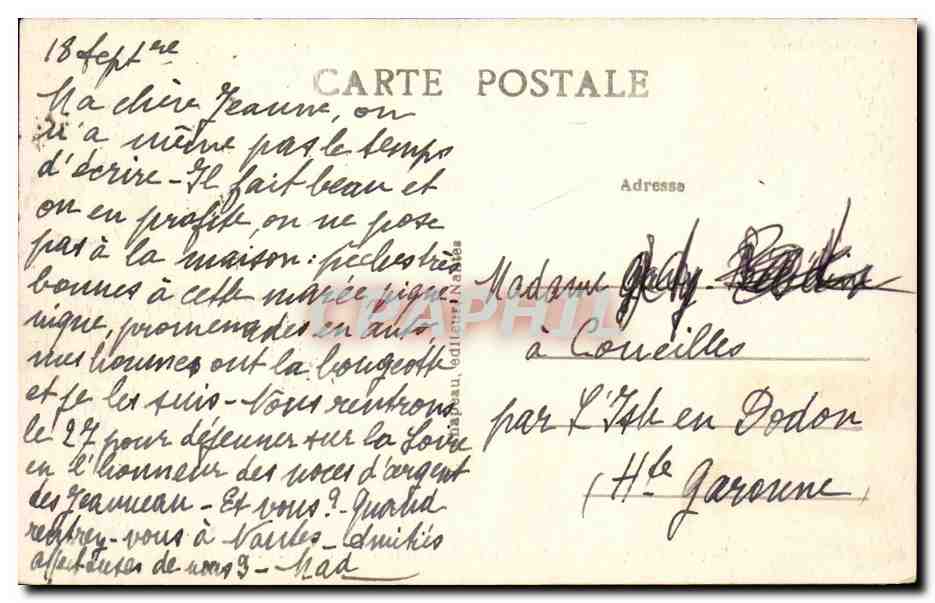 18 Septre
CARTE POSTALE
Ma chère Jeanne, on
n'a même pas le temps
d'écrire - Il fait beau et
on en profite, on ne pose
pas à la maison : pêches très
bonnes à cette marée, pique
nique, promenades en auto,
mes hommes ont la bougeotte
et je les suis - Nous rentrons
le 27 pour déjeuner sur la Loire
en l'honneur des noces d'argent
des Jeanneau - Et vous ? - Quand
rentrez-vous à Nantes - Amitiés
affectueuses de nous 3 - Mad
Chapeau, éditeur, Nantes
Adresse
Madame
à Coueilles
par L'Isle en Dodon
(Hte Garonne)
CPAPHIL